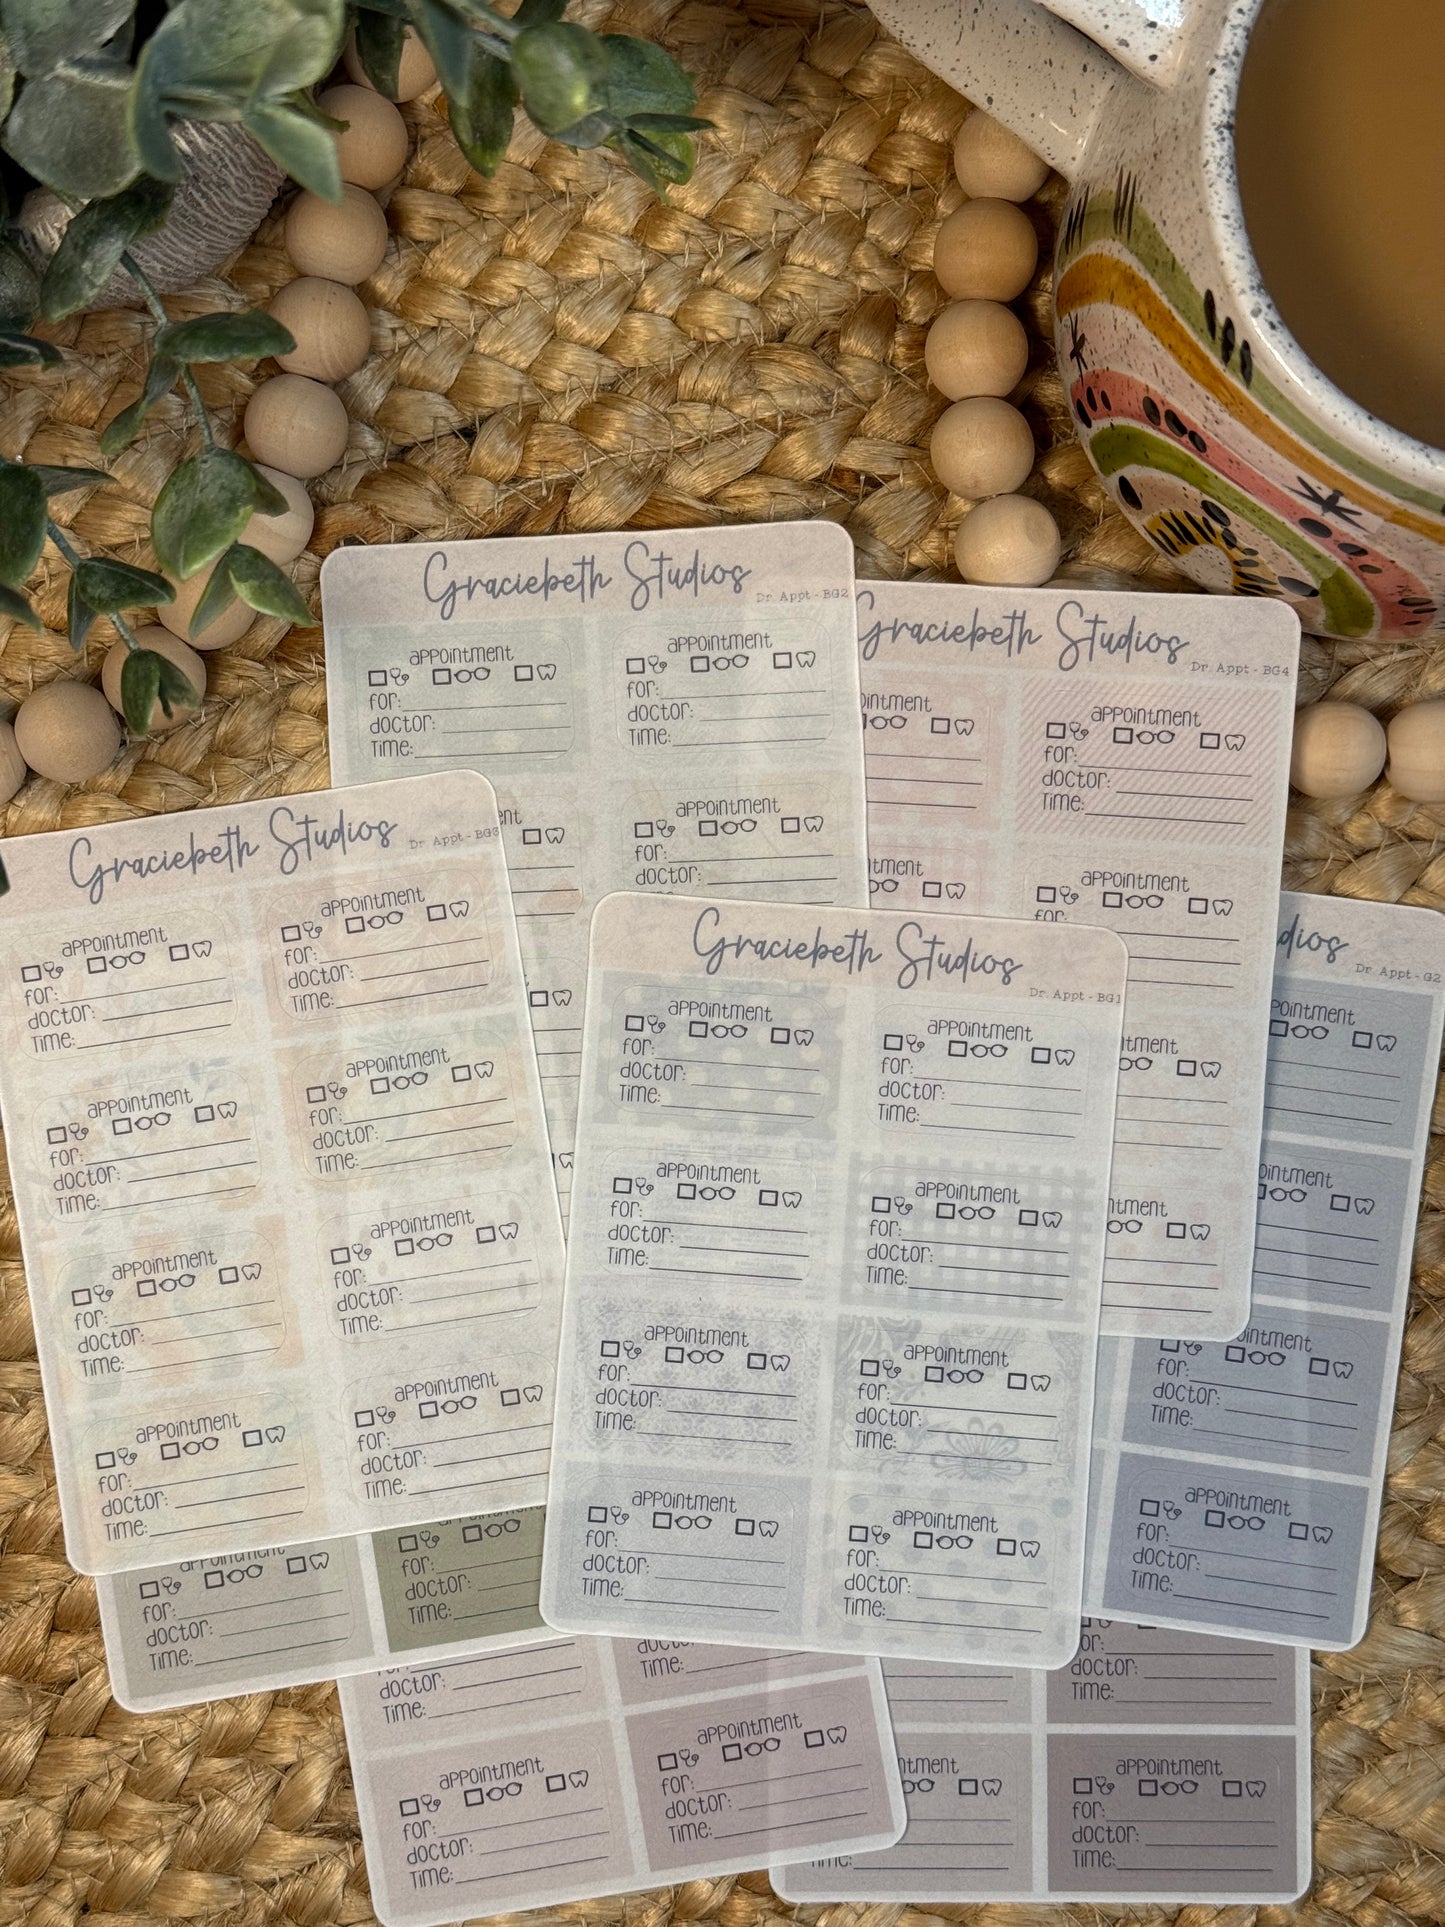 Graciebeth Studios
Dr. Appt - BG2
appointment
for:
doctor:
Time:
appointment
for:
doctor:
Time:
appointment
for:
doctor:
Graciebeth Studios
Dr. Appt - BG4
appointment
for:
doctor:
Time:
appointment
for:
Graciebeth Studios
Dr. Appt - BG3
appointment
for:
doctor:
Time:
appointment
for:
doctor:
Time:
appointment
for:
doctor:
Time:
appointment
for:
doctor:
Time:
appointment
for:
doctor:
Time:
appointment
for:
doctor:
Time:
appointment
for:
doctor:
Time:
appointment
for:
doctor:
Time:
Graciebeth Studios
Dr. Appt - BG1
appointment
for:
doctor:
Time:
appointment
for:
doctor:
Time:
appointment
for:
doctor:
Time:
appointment
for:
doctor:
Time:
appointment
for:
doctor:
Time:
appointment
for:
doctor:
Time:
appointment
for:
doctor:
Time:
appointment
for:
doctor:
Time:
dios
Dr. Appt - G2
ointment
for:
doctor:
Time:
appointment
for:
doctor:
Time:
appointment
for:
doctor:
Time:
appointment
for:
doctor:
Time:
doctor:
Time:
doctor:
Time:
appointment
for:
doctor:
Time:
appointment
for:
doctor:
Time:
doctor:
Time:
Time:
appointment
for:
doctor:
Time: